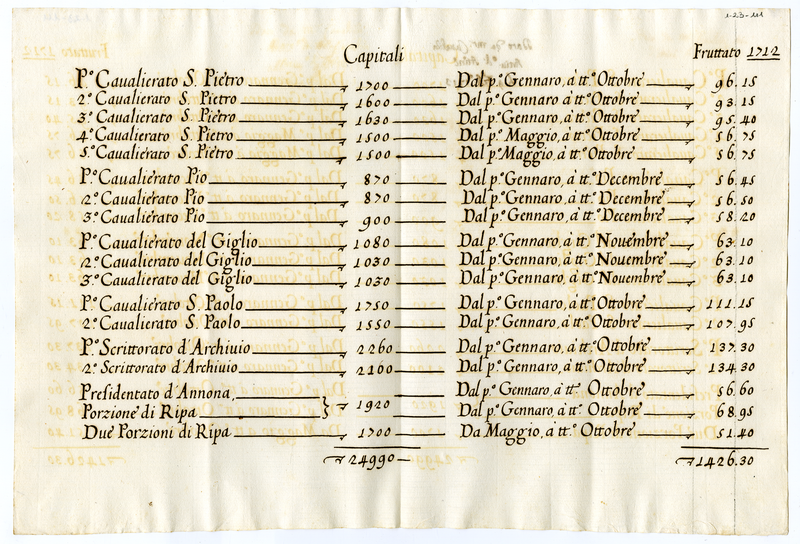 1-23-111
Capitali Fruttato 1712
P.º Caualierato S. Pietro 1700 Dal p.º Gennaro, à tt.º Ottobre 96.15
2.º Caualierato S. Pietro 1600 Dal p.º Gennaro à tt.º Ottobre 93.15
3.º Caualierato S. Pietro 1630 Dal p.º Gennaro, à tt.º Ottobre 95.40
4.º Caualierato S. Pietro 1500 Dal p.º Maggio, à tt.º Ottobre 56.75
5.º Caualierato S. Pietro 1500 Dal p.º Maggio, à tt.º Ottobre 56.75
P.º Caualierato Pio 870 Dal p.º Gennaro, à tt.º Decembre 56.45
2.º Caualierato Pio 870 Dal p.º Gennaro, à tt.º Decembre 56.50
3.º Caualierato Pio 900 Dal p.º Gennaro, à tt.º Decembre 58.20
P.º Caualierato del Giglio 1080 Dal p.º Gennaro, à tt.º Nouembre 63.10
2.º Caualierato del Giglio 1030 Dal p.º Gennaro, à tt.º Nouembre 63.10
3.º Caualierato del Giglio 1030 Dal p.º Gennaro, à tt.º Nouembre 63.10
P.º Caualierato S. Paolo 1750 Dal p.º Gennaro, à tt.º Ottobre 111.15
2.º Caualierato S. Paolo 1550 Dal p.º Gennaro, à tt.º Ottobre 107.95
P.º Scrittorato d'Archiuio 2260 Dal p.º Gennaro, à tt.º Ottobre 137.30
2.º Scrittorato d'Archiuio 2100 Dal p.º Gennaro, à tt.º Ottobre 134.30
Presidentato d'Annona, Dal p.º Gennaro, à tt.º Ottobre 56.60
Porzione di Ripa } 1920 Dal p.º Gennaro, à tt.º Ottobre 68.95
Due Porzioni di Ripa 1700 Da Maggio, à tt.º Ottobre 51.40
24990 1426.30